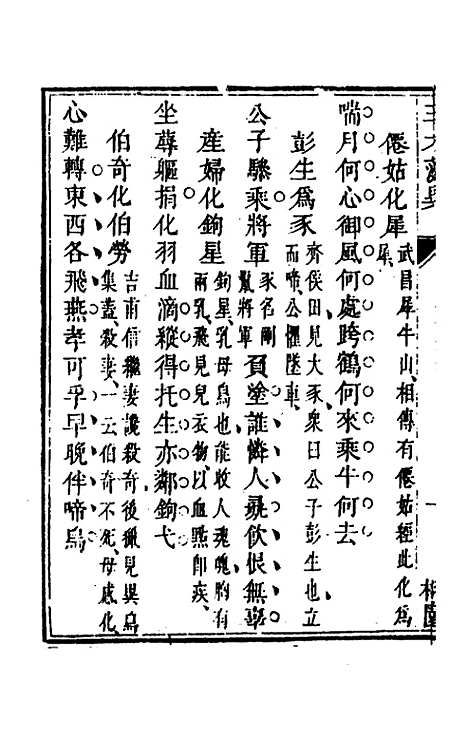 僊姑化犀 武昌犀牛山、相傳有僊姑經此化為犀、
喘月何心御風何處跨鶴何來乘牛何去
彭生為豕 齊侯田見大豕、衆曰公子彭生也、立而啼、公懼墜車、
公子驂乘將軍 豕名剛鬣將軍 負塗誰憐人彘飲恨無辜
產婦化鉤星 鉤星、乳母鳥也、能收人魂魄、胸有兩乳、飛見兒衣物、以血點卽疾、
坐蓐軀捐化羽血滴縱得托生亦鄰鉤弋
伯奇化伯勞 吉甫信繼妻讒殺奇後獵見異鳥集蓋、殺妻、一云伯奇不死、母感化、
心難轉東西各飛燕孝可乎早晚伴啼烏